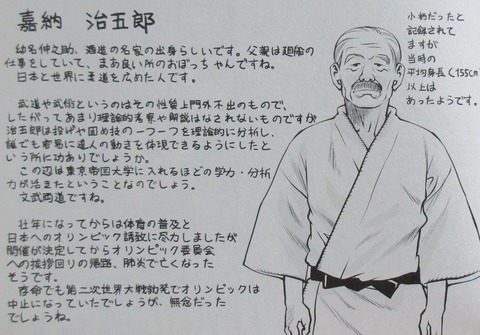 嘉納 治五郎
幼名伸之助、酒造の名家の出身らしいです。父親は廻船の
仕事をしていて、まあ良い所のおぼっちゃんですね。
日本と世界に柔道を広めた人です。
武道や武術というのはその性質上門外不出のもので、
したがってあまり理論的考察や解説はなされないものですが
治五郎は投げや固め技の一つ一つを理論的に分析し、
誰でも容易に達人の動きを体現できるようにしたと
いう所に功ありでしょうか。
この辺は東京帝国大学に入れるほどの学力・分析
力が活きたということなのでしょう。
文武両道ですね。
壮年になってからは体育の普及と
日本へのオリンピック誘致に尽力しましたが
開催が決定してからオリンピック委員会
への挨拶回りの帰路、肺炎で亡くなった
そうです。
存命でも第二次世界大戦勃発でオリンピックは
中止になっていたでしょうが、無念だった
でしょうね。
小柄だったと
記録されて
ますが
当時の
平均身長(155cm)
以上は
あったようです。